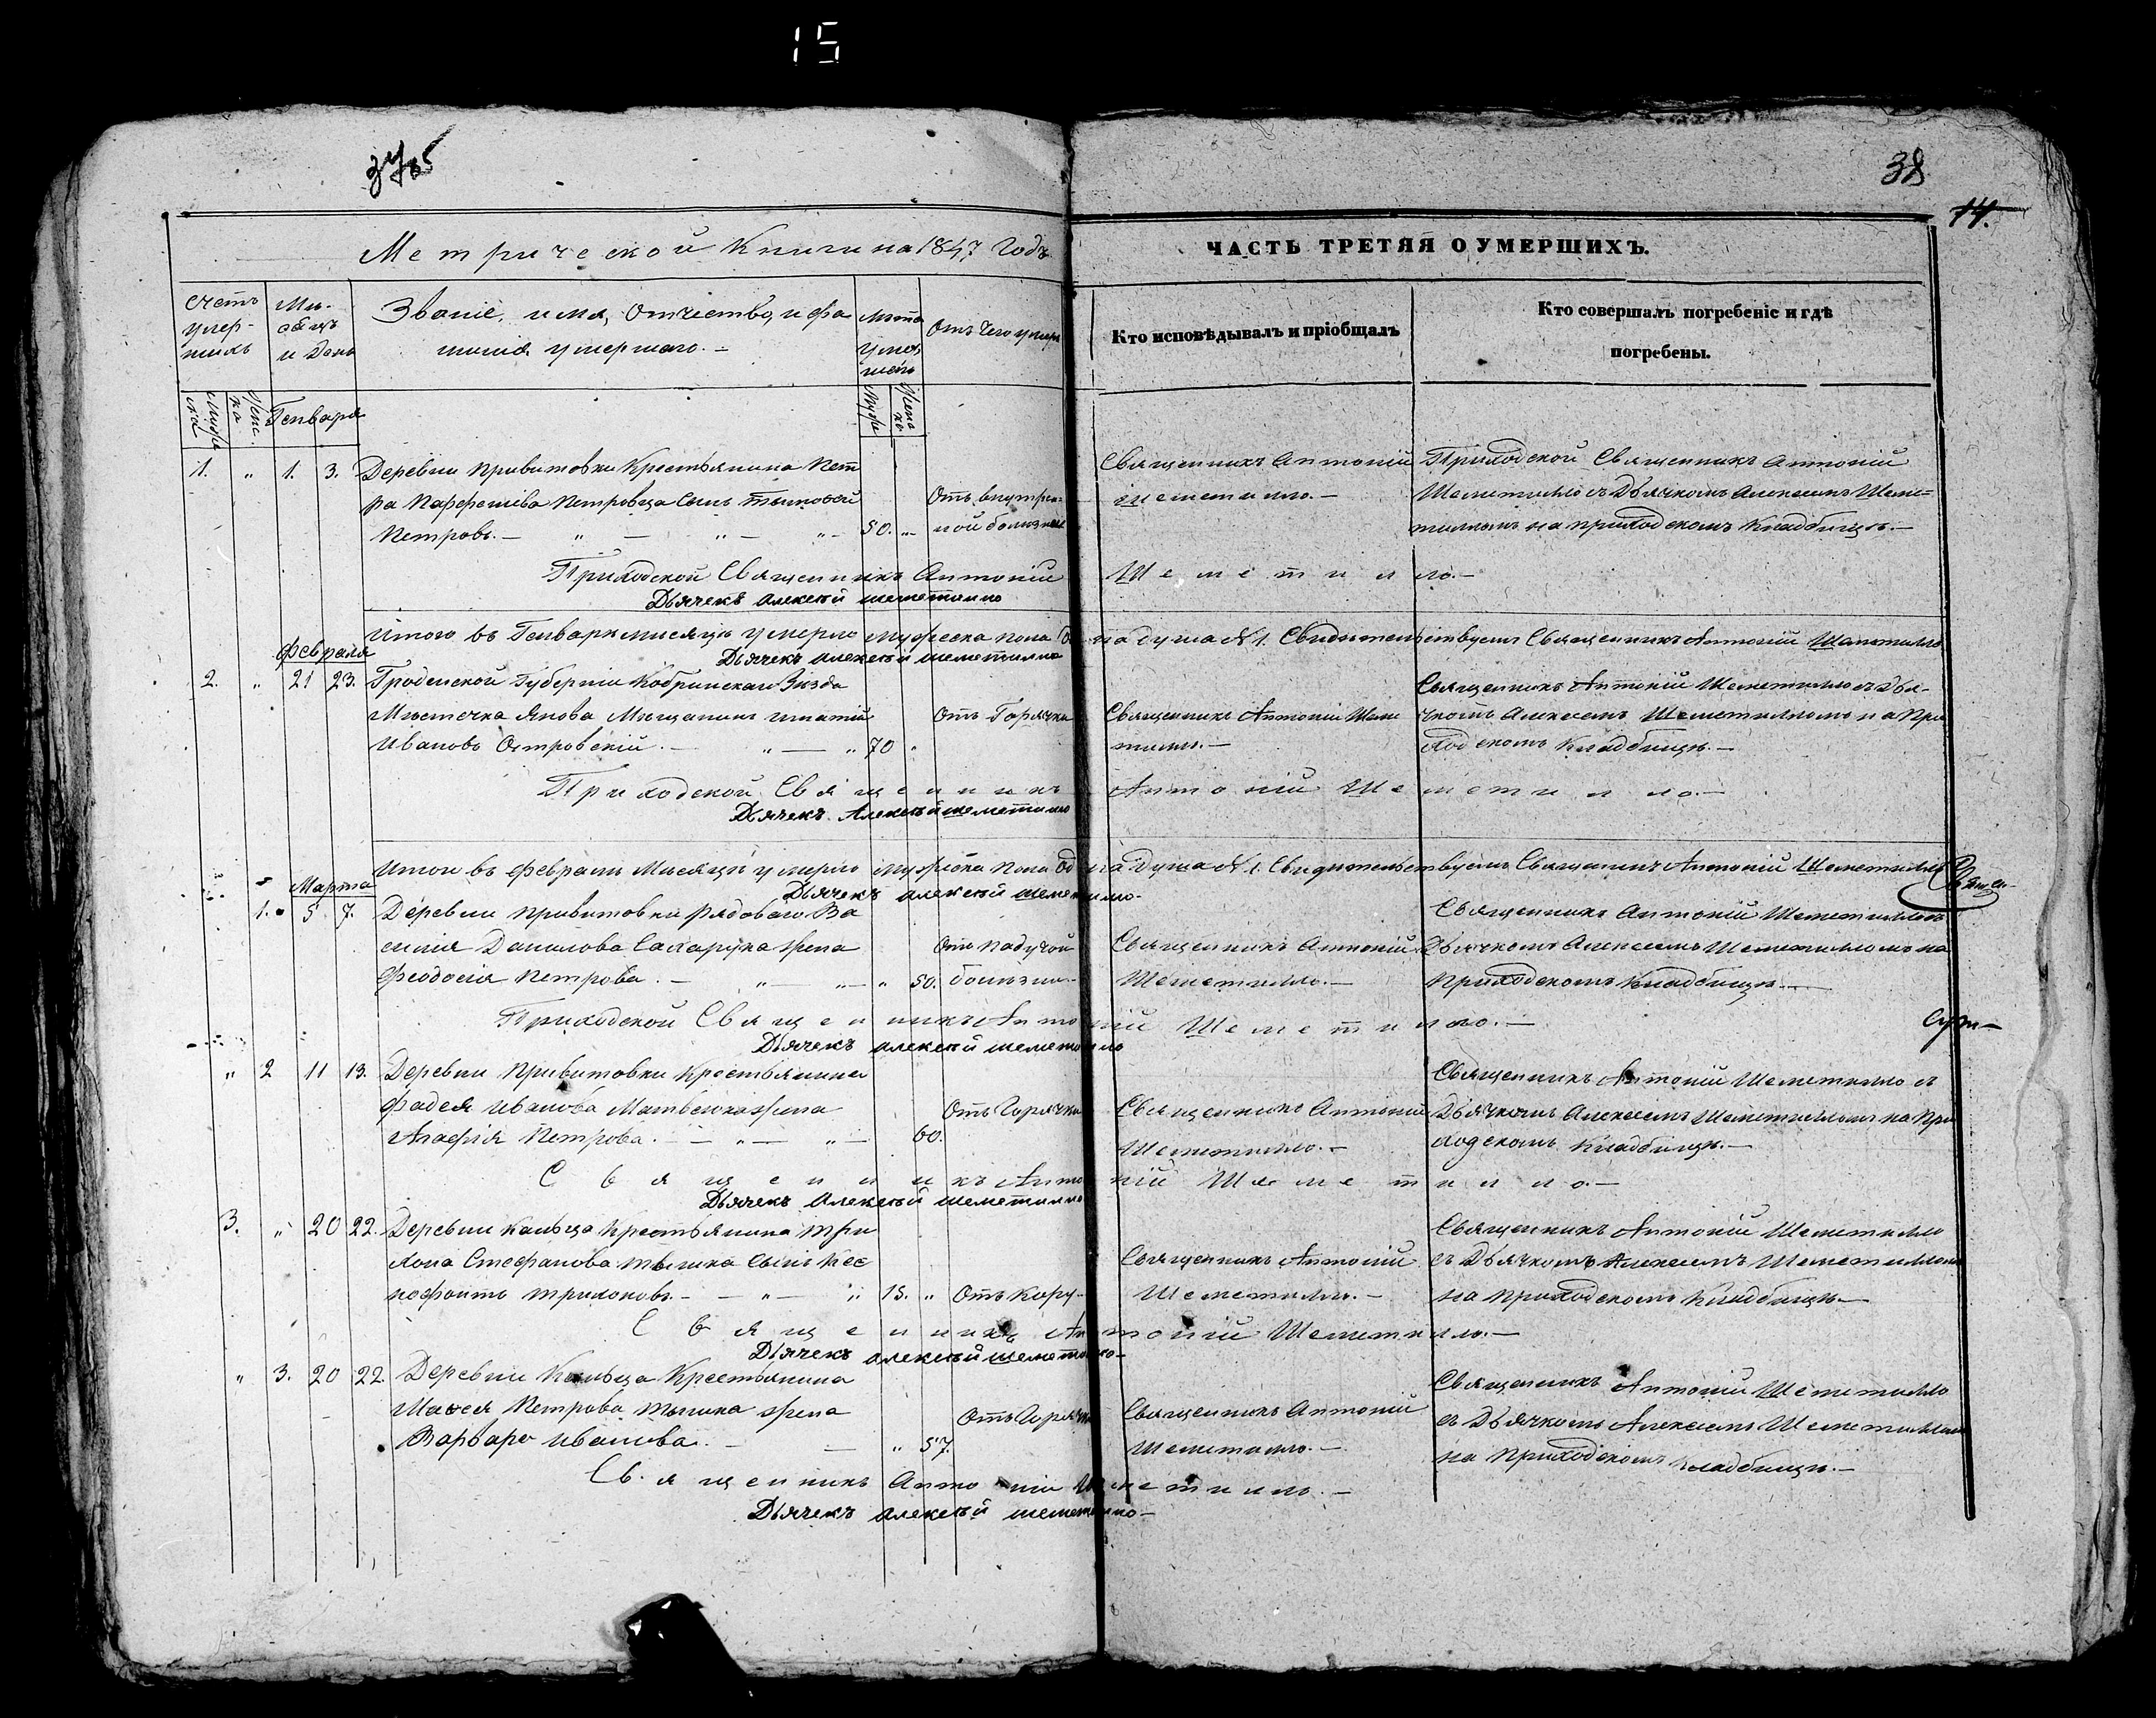 15
38
14.
Метрической Книги на 1847 Годъ
ЧАСТЬ ТРЕТЯЯ О УМЕРШИХЪ.
Счетъ умер-
шихъ
Мѣ-
сяцъ
и День
Званіе, имя, Отчіество, и фа
милія умершаго. –
Лѣта
Умер
шего
Отъ Чего умеръ
Кто исповѣдывалъ и пріобщалъ
Кто совершалъ погребеніе и гдѣ
погребены.
Генваря
1. " 1. 3. Деревни Привитовки Крестьянина Пет
ра Парфеніева Петровца Сынъ
Петровъ. – 50. "
Отъ внутрен-
ной болѣзни
Священникъ Антоній
Шеметилло. –
Приходской Священникъ Антоній
Шеметилло съ Дьячкомъ Алексеемъ Шеме=
тилломъ на приходскомъ Кладбищѣ. –
Приходской Священникъ Антоній Шеметилло. –
Дьячекъ Алексѣй Шеметилло
Итого въ Генварѣ мисяцѣ умерло мужеска пола одна душа №1. Свидѣтельствуемъ Священникъ Антоній Шеметилло
Дьячекъ Алексѣй Шеметилло
Февраля
2. " 21 23. Гродненской Губерніи Кобринскаго Уѣзда
Мѣстечка Янова Мѣщанинъ Игнатій
Ивановъ Островскій. – " 70 "
Отъ Горячки
Священникъ Антоній Шеме
тилло. –
Священникъ Антоній Шеметилло съ Дья-
чкомъ Алексеемъ Шеметилломъ на При
ходскомъ Кладбищѣ. –
Приходской Священникъ Антоній Шеметилло. –
Дьячекъ Алексѣй Шеметилло
Итого въ Февралѣ Мисяцѣ умерло Мужеска Пола Одна душа №1. Свидѣтельствуемъ Священникъ Антоній Шеметилло
Дьячекъ Алексѣй Шеметилло.
Марта
1. 5 7. Деревни Привитовки Рядоваго Ва
силія Данилова Сахарука жена
Феодосія Петрова. – " 50.
Отъ падучой
болѣзни. –
Священникъ Антоній
Шеметилло. –
Священникъ Антоній Шеметилло съ
Дьячкомъ Алексеемъ Шеметилломъ на
Приходскомъ Кладбищѣ. –
Приходской Священникъ Антоній Шеметилло. –
Дьячекъ Алексѣй Шеметилло
" 2 11 13. Деревни Привитовки Крестьянина
Фадея Иванова Матвеюка жена
Агафія Петрова. – 60.
Отъ Горячки
Священникъ Антоній
Шеметилло. –
Священникъ Антоній Шеметилло съ
Дьячкомъ Алексеемъ Шеметилломъ на При
ходскомъ Кладбищѣ. –
Священникъ Антоній Шеметилло. –
Дьячекъ Алексѣй Шеметилло
3. " 20 22. Деревни Кальца Крестьянина Три
Стефанова сынъ Ксе
нофонтъ – 15. "
Отъ Кору-
Священникъ Антоній
Шеметилло. –
Священникъ Антоній Шеметилло
съ Дьячкомъ Алексеемъ Шеметилломъ
на Приходскомъ Кладбищѣ. –
Священникъ Антоній Шеметилло. –
Дьячекъ Алексѣй Шеметилло –
" 3. 20 22. Деревни Кальца Крестьянина
Петрова жена
Варвара Иванова. – " 57.
Отъ Горячки
Священникъ Антоній
Шеметилло. –
Священникъ Антоній Шеметилло
съ Дьячкомъ Алексеемъ Шеметилломъ
на Приходскомъ Кладбищѣ. –
Священникъ Антоній Шеметилло. –
Дьячекъ Алексѣй Шеметилло –